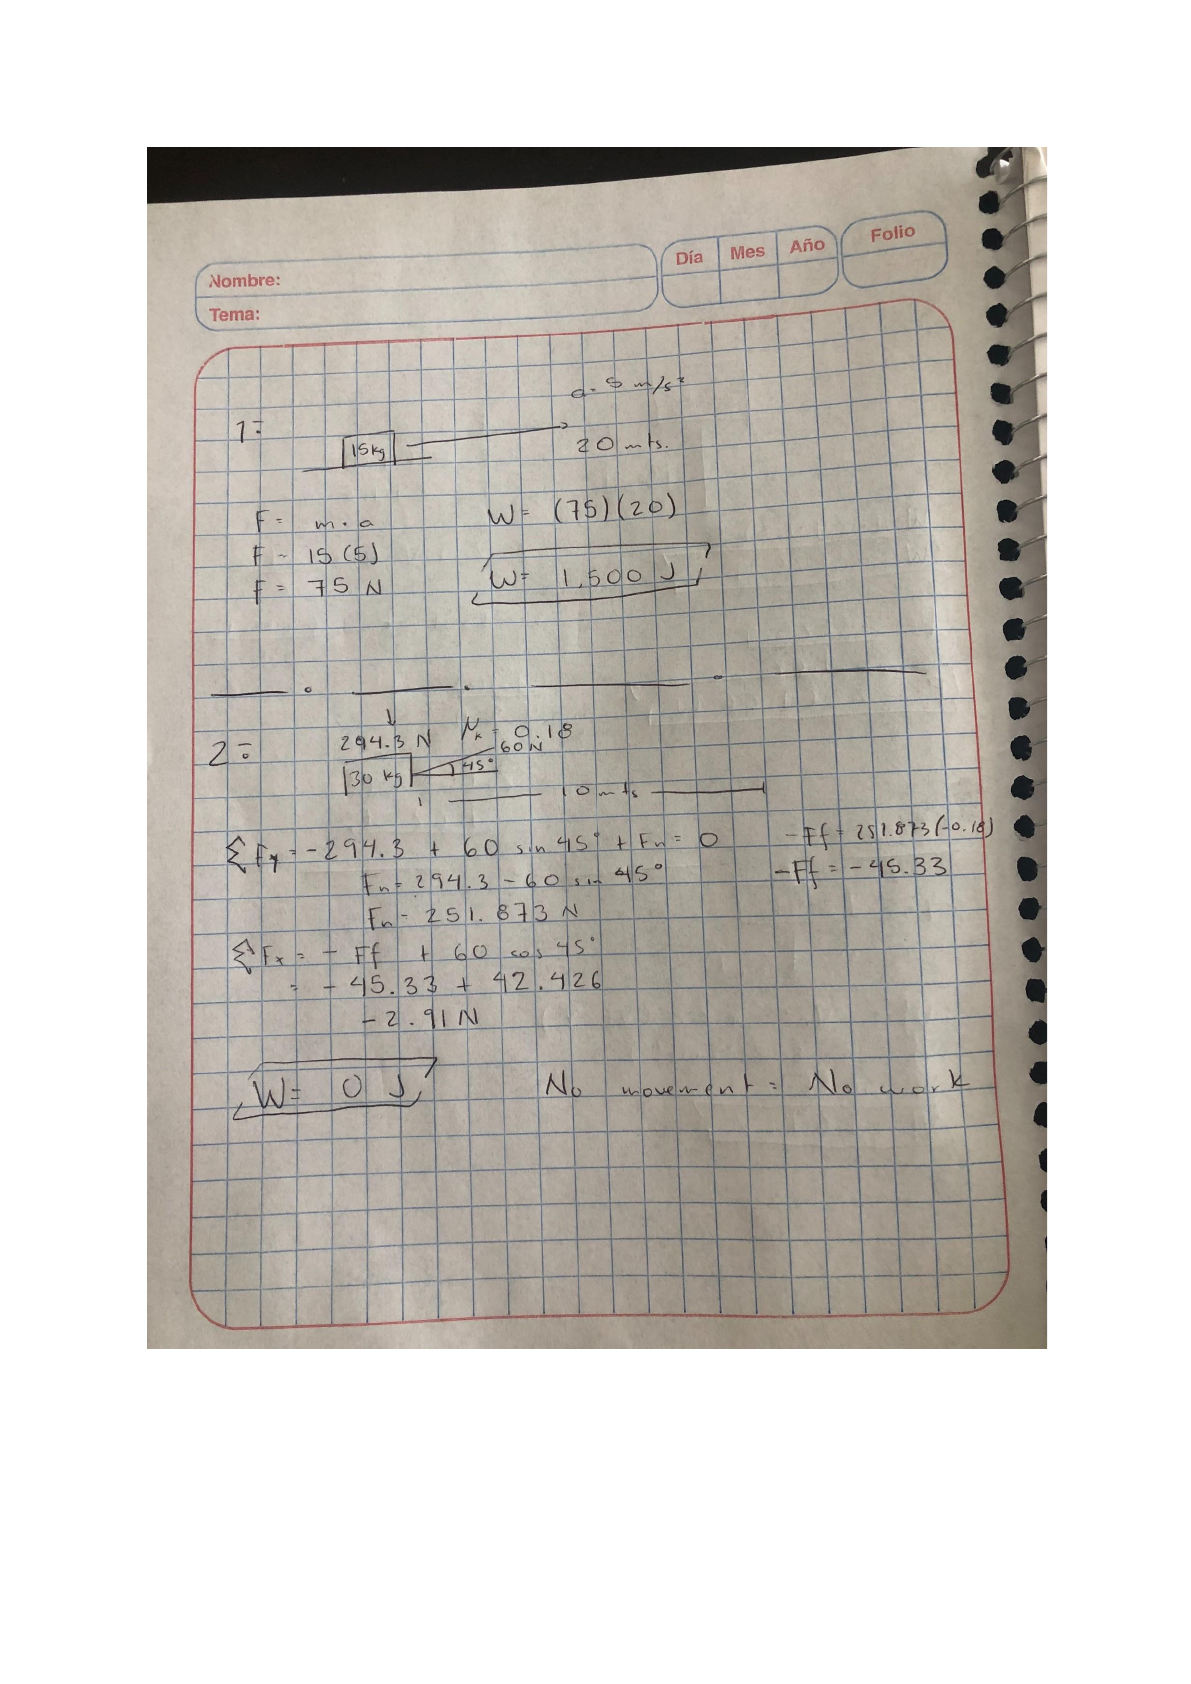 Nombre:
Tema:
Día Mes Año
Folio
a = 5 m/s²
1=
15kg
20 mts.
F = m . a
F = 15 (5)
F = 75 N
W= (75)(20)
W= 1,500 J
2=
294.3 N
μk = 0.18
60N
30 kg
45°
10 mts
ΣFy = -294.3 + 60 sin 45° + Fn = 0
Fn = 294.3 - 60 sin 45°
Fn = 251.873 N
-Ff = 251.873(-0.18)
-Ff = -45.33
ΣFx = - Ff + 60 cos 45°
= - 45.33 + 42.426
-2.91 N
W= 0 J
No movement = No work